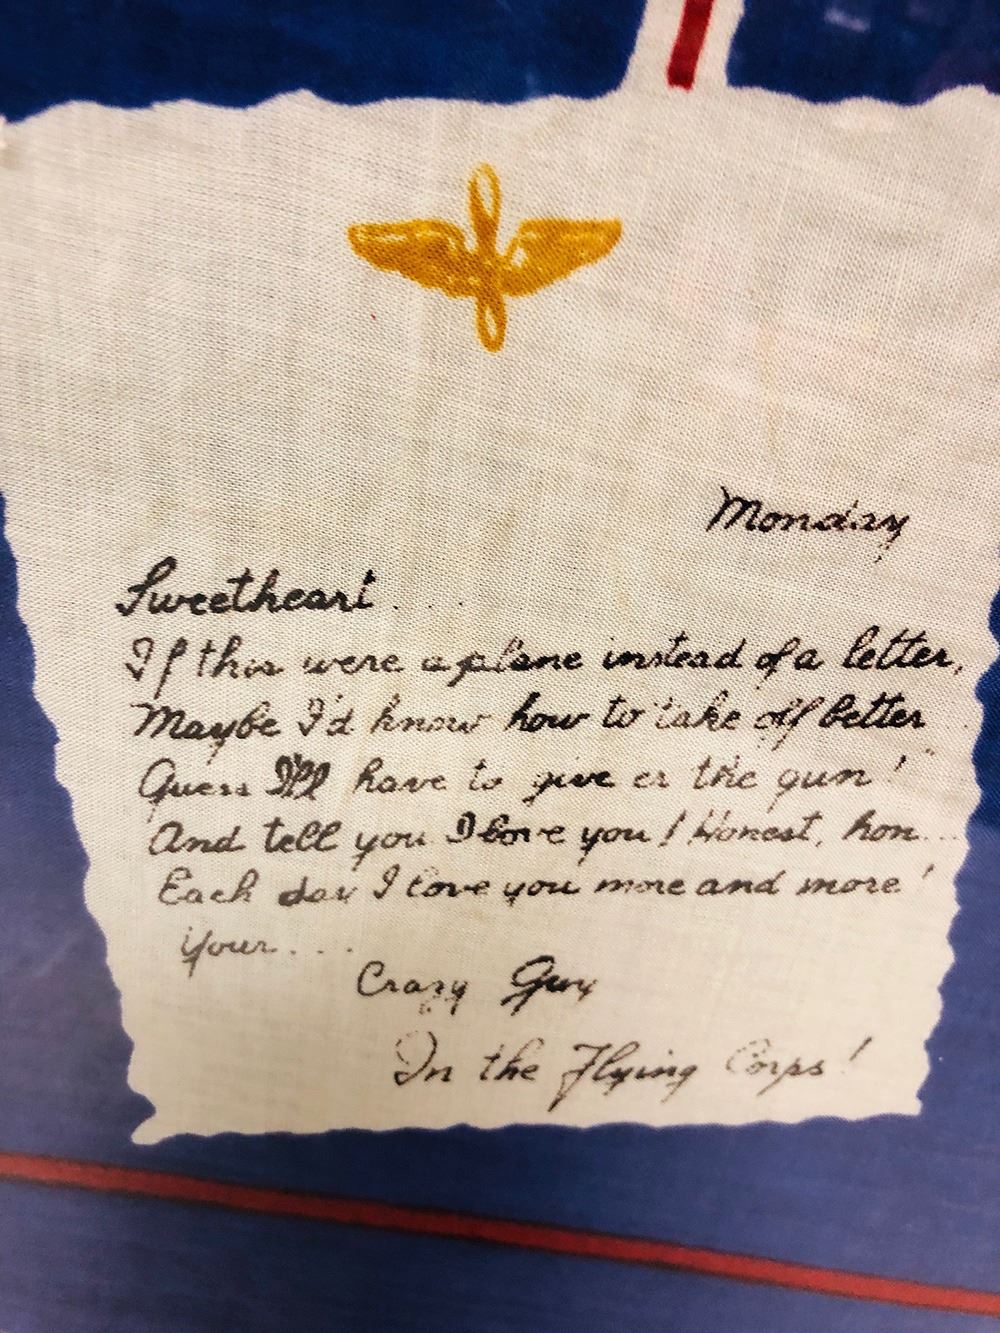 Monday
Sweetheart...
If this were a plane instead of a letter,
Maybe I'd know how to take off better
Guess I'll have to give er the gun!
And tell you I love you! Honest, hon...
Each day I love you more and more!
your....
Crazy Guy
In the Flying Corps!